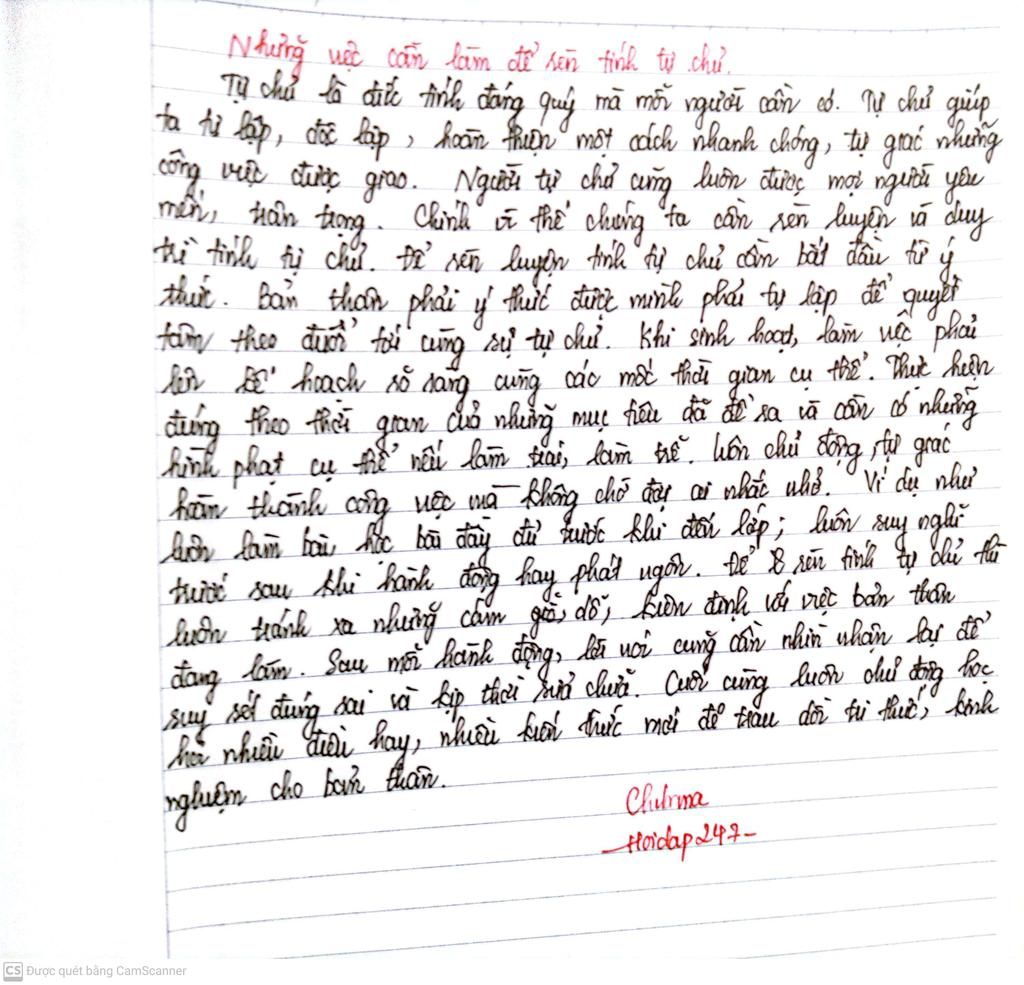 Những việc cần làm để rèn tính tự chủ.
Tự chủ là đức tính đáng quý mà mỗi người cần có. Tự chủ giúp
ta tự lập, độc lập, hoàn thiện một cách nhanh chóng, tự giác những
công việc được giao. Người tự chủ cũng luôn được mọi người yêu
mến, trân trọng. Chính vì thế chúng ta cần rèn luyện và duy
trì tính tự chủ. Để rèn luyện tính tự chủ cần bắt đầu từ ý
thức. Bản thân phải ý thức được mình phải tự lập để quyết
tâm theo đuổi tới cùng sự tự chủ. Khi sinh hoạt, làm việc phải
lên kế hoạch rõ ràng cùng các mốc thời gian cụ thể. Thực hiện
đúng theo thời gian của những mục tiêu đã đề ra và cần có những
hình phạt cụ thể nếu làm trái, làm trễ. Luôn chủ động, tự giác
hoàn thành công việc mà không chờ đợi ai nhắc nhở. Ví dụ như
luôn làm bài, học bài đầy đủ trước khi đến lớp; luôn suy nghĩ
trước sau khi hành động hay phát ngôn. Để rèn tính tự chủ thì
luôn tránh xa những cám dỗ, kiên định với việc bản thân
đang làm. Sau mỗi hành động, lời nói cũng cần nhìn nhận lại để
suy xét đúng sai và kịp thời sửa chữa. Cuối cùng luôn chủ động học
hỏi nhiều điều hay, nhiều kiến thức mới để trau dồi tri thức, kinh
nghiệm cho bản thân.
Hoidap247
CS Được quét bằng CamScanner